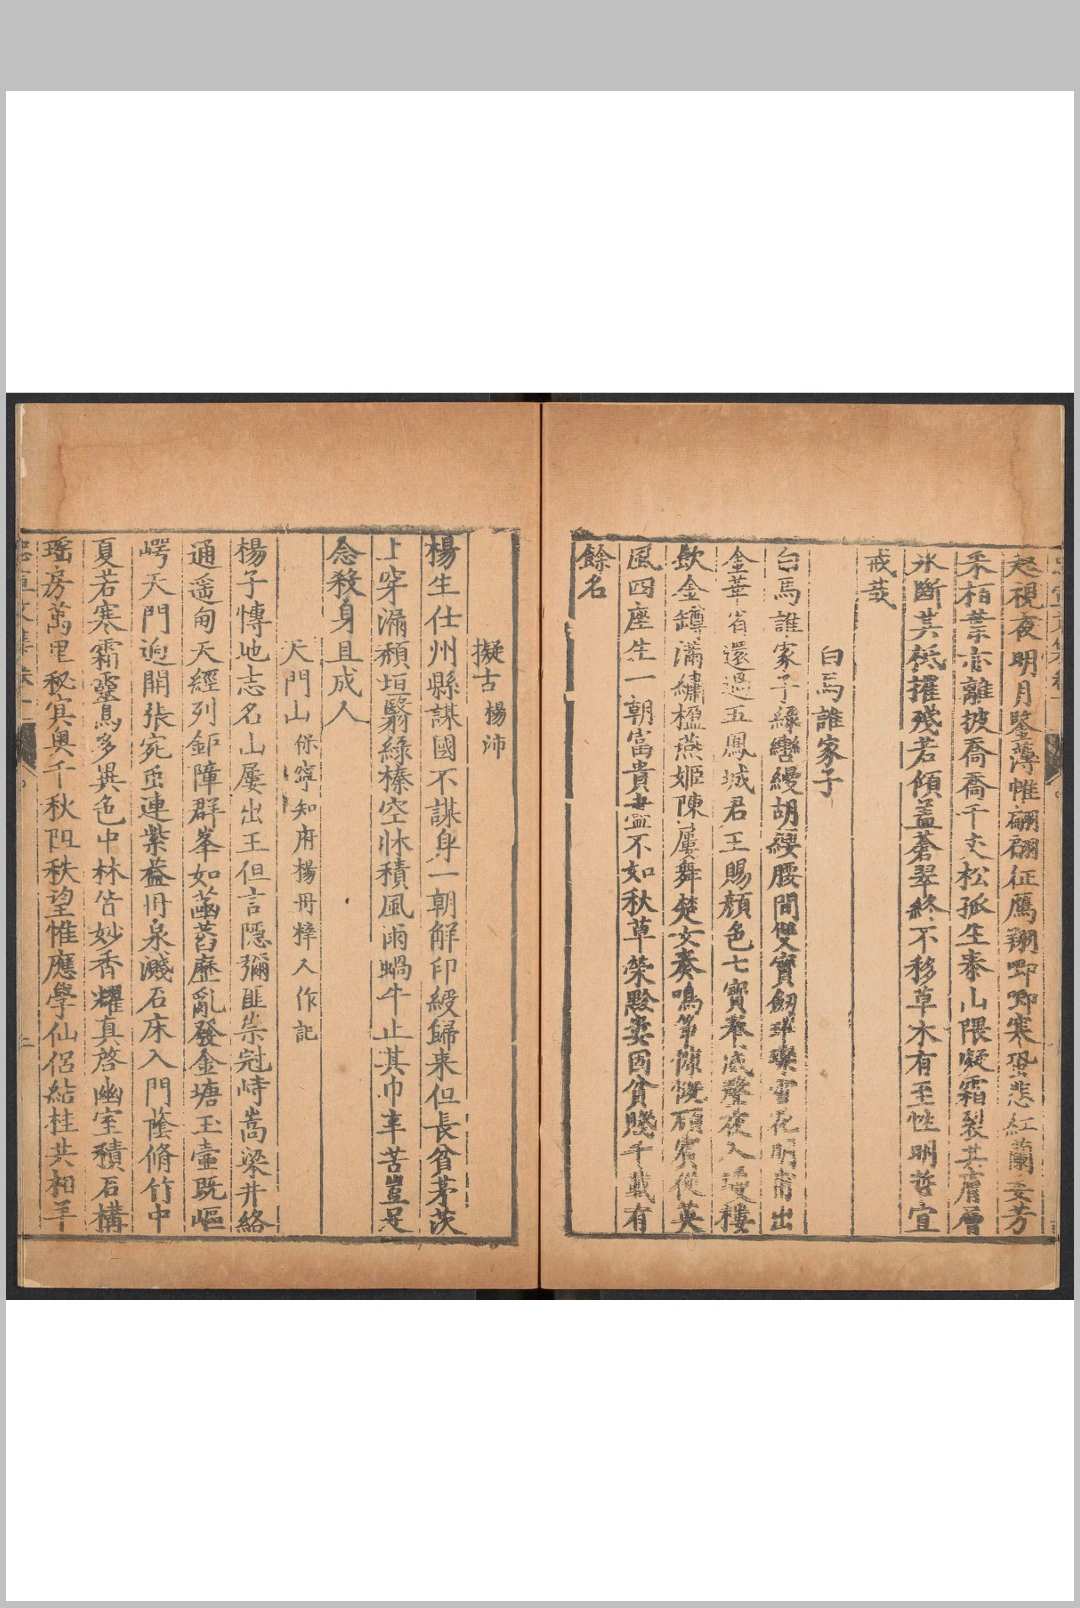 起視夜明月鑒薄帷翩翩征鴈翔唧唧寒蛩悲紅蘭委芳
采柏葉亦離披喬喬千丈松孤生泰山隈凝霜裂其膚層
氷斷其柢摧殘若傾蓋蒼翠終不移草木有至性明哲宜
戒哉
白馬誰家子
白馬誰家子綠轡縵胡纓腰間雙寶劒璀璨雪花明甫出
金華省還過五鳳城君王賜顔色七寶奉威聲夜入瓊樓
飲金罇滿繡楹燕姬陳屢舞楚女奏鳴箏慷慨顧賓從英
風四座生一朝富貴盡不如秋草榮黔婁固貧賤千載有
餘名
擬古楊沛
楊生仕州縣謀國不謀身一朝解印綬歸来但長貧茅茨
上穿漏頹垣翳綠榛空牀積風雨蝸牛止其巾辛苦豈足
念殺身且成人
天門山保寧知府楊冊梓人作記
楊子慱地志名山屢出王但言隱彌匪崇冠峙嵩梁井絡
通遥甸天經列鉅障群峯如菡萏歷亂發金塘玉壷既嶇
崿天門逈開張宛虹連紫葢冊泉濺石床入門蔭脩竹中
夏若寒霜靈鳥多異色中林皆妙香耀真啓幽室積石構
瑶房萬里秘寘奥千秋阻秩望惟應學仙侣結桂共相羊